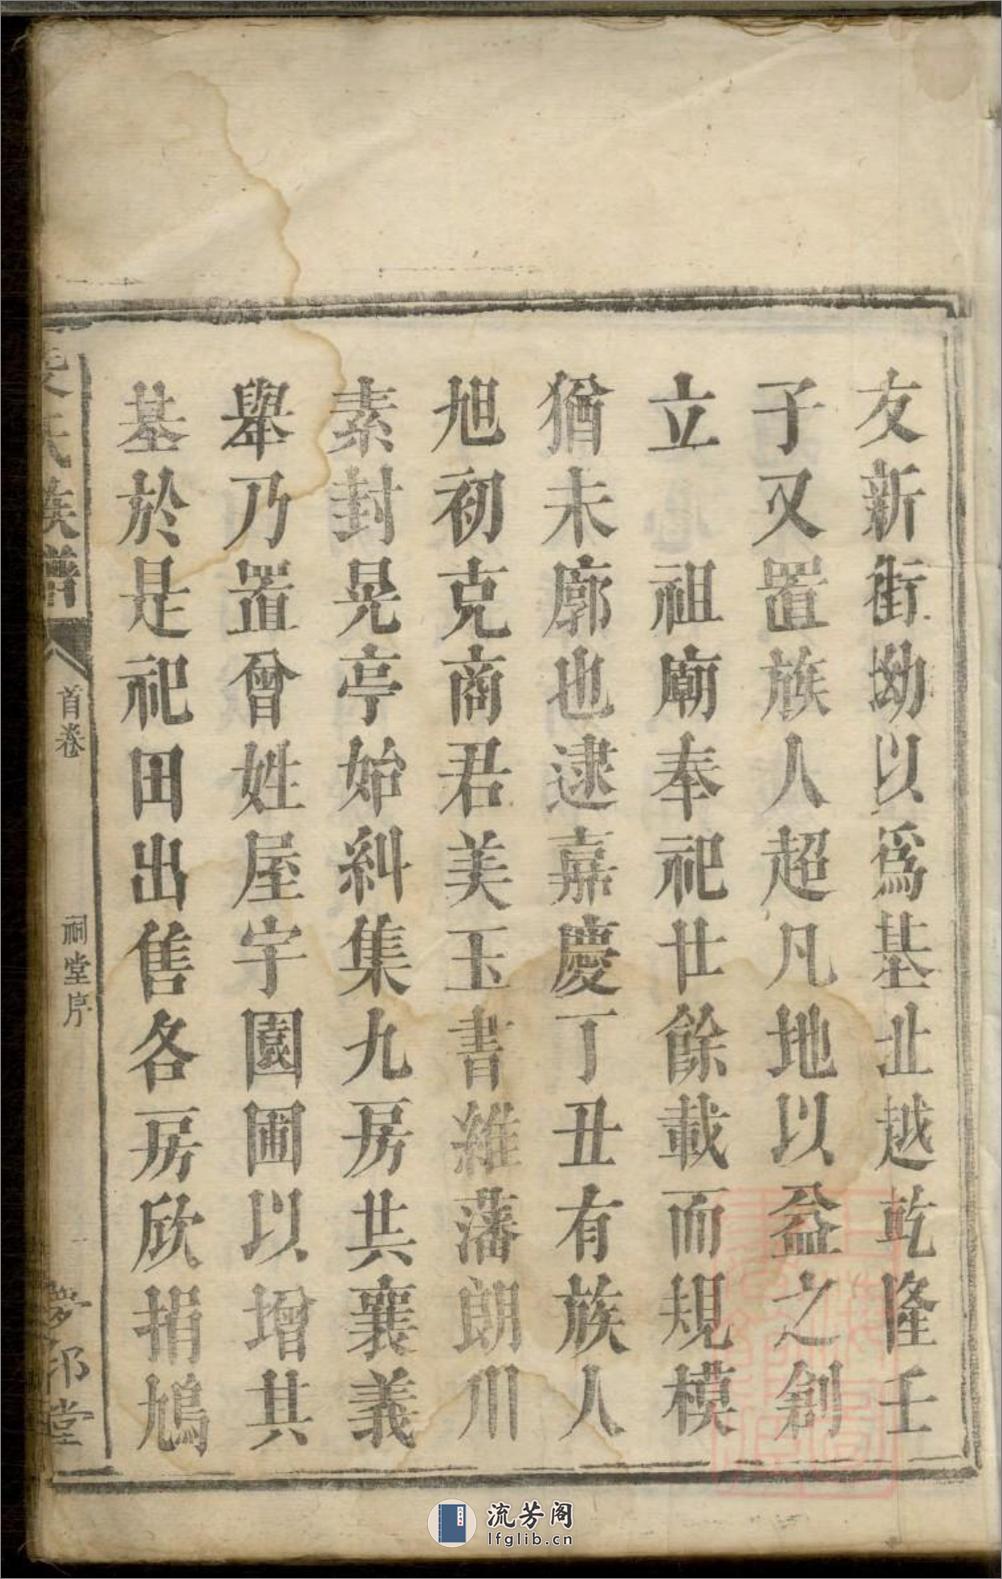 友新街坳以爲基址越乾隆壬
子又置族人超凡地以益之創
立　祖廟奉祀廿餘載而規模
猶未廓也逮嘉慶丁丑有族人
旭初克商君美玉書維藩朗川
素封晃亭始糾集九房共襄義
舉乃置曾姓屋宇園圃以增其
基於是祀田出售各房欣捐鳩
氏族譜
首卷
祠堂序
一
夢邠堂
流芳阁
lfglib.cn